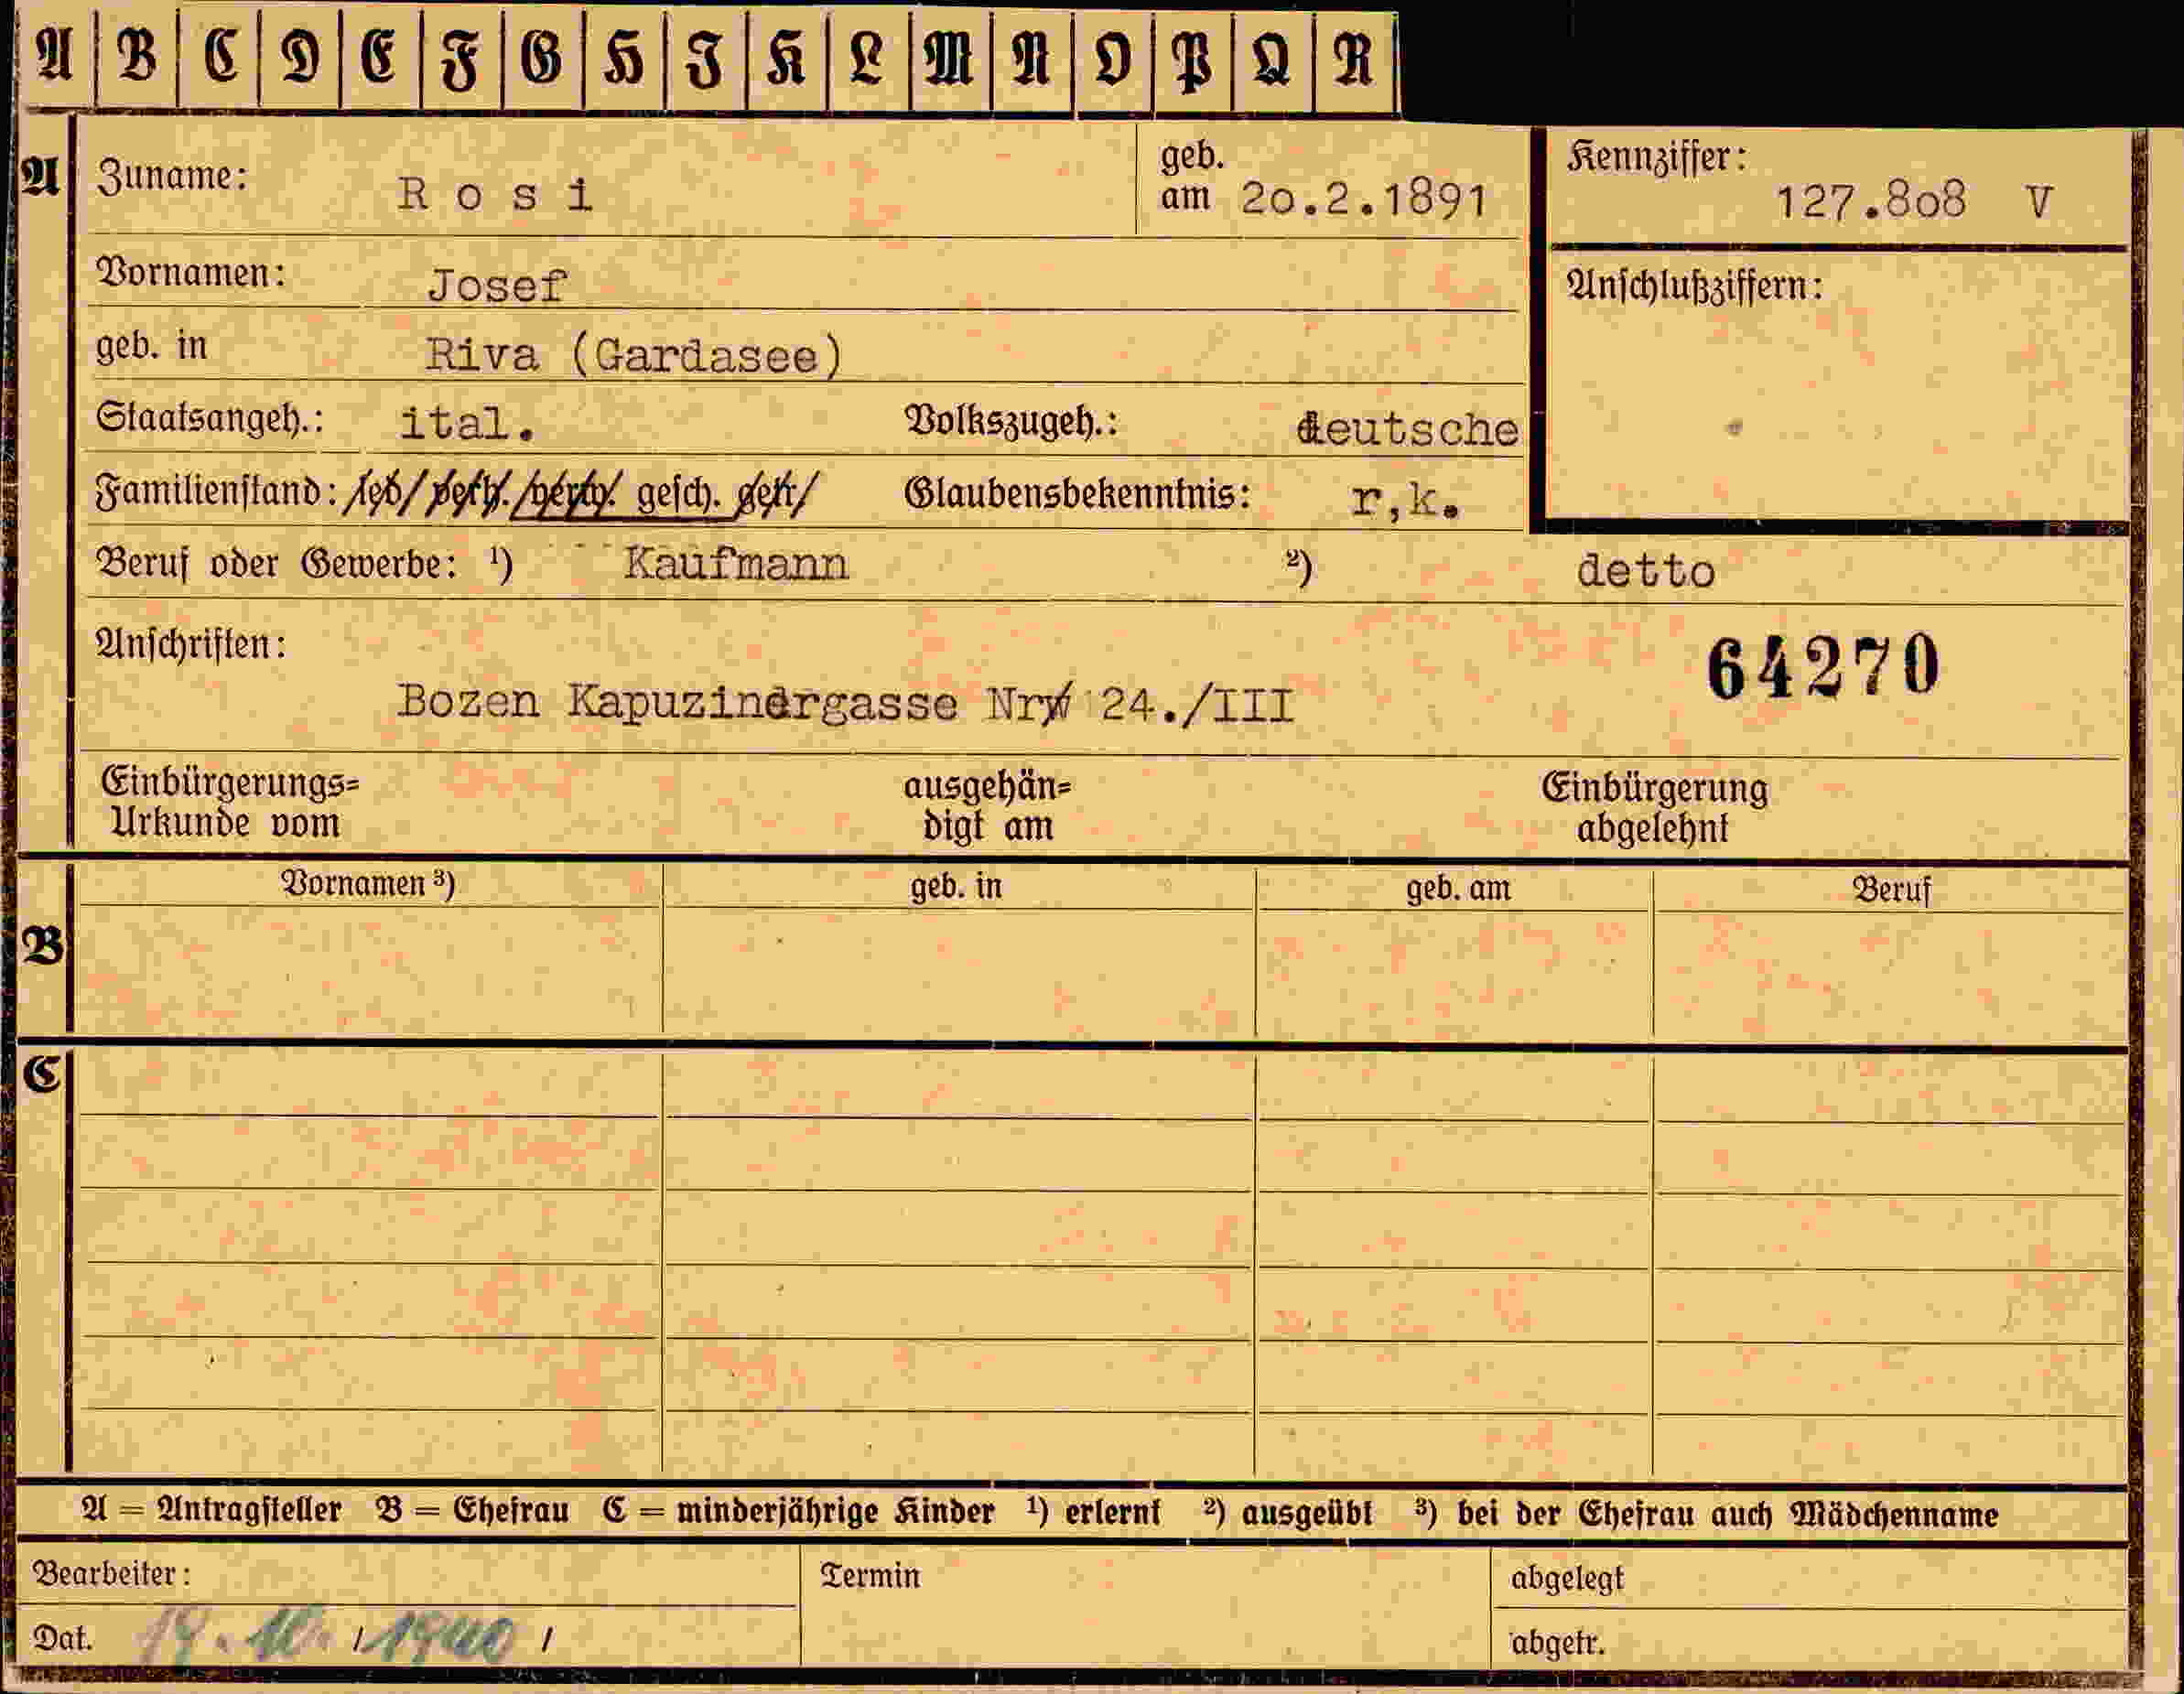 A B C D E F G H I K L M N O P Q R
A Zuname: Rosi geb. am 20.2.1891 Kennziffer: 127.808 V
Vornamen: Josef Anschlußziffern:
geb. in Riva (Gardasee)
Staatsangeh.: ital. Volkszugeh.: deutsche
Familienstand: led. verh. verw. gesch. getr. Glaubensbekenntnis: r,k.
Beruf oder Gewerbe: ¹) Kaufmann ²) detto
Anschriften: 64270
Bozen Kapuzinergasse Nr. 24./III
Einbürgerungs= ausgehän= Einbürgerung
Urkunde vom digt am abgelehnt
Vornamen ³) geb. in geb. am Beruf
B
C
A = Antragsteller B = Ehefrau C = minderjährige Kinder ¹) erlernt ²) ausgeübt ³) bei der Ehefrau auch Mädchenname
Bearbeiter: Termin abgelegt
Dat. 19.10./1940/ abgetr.